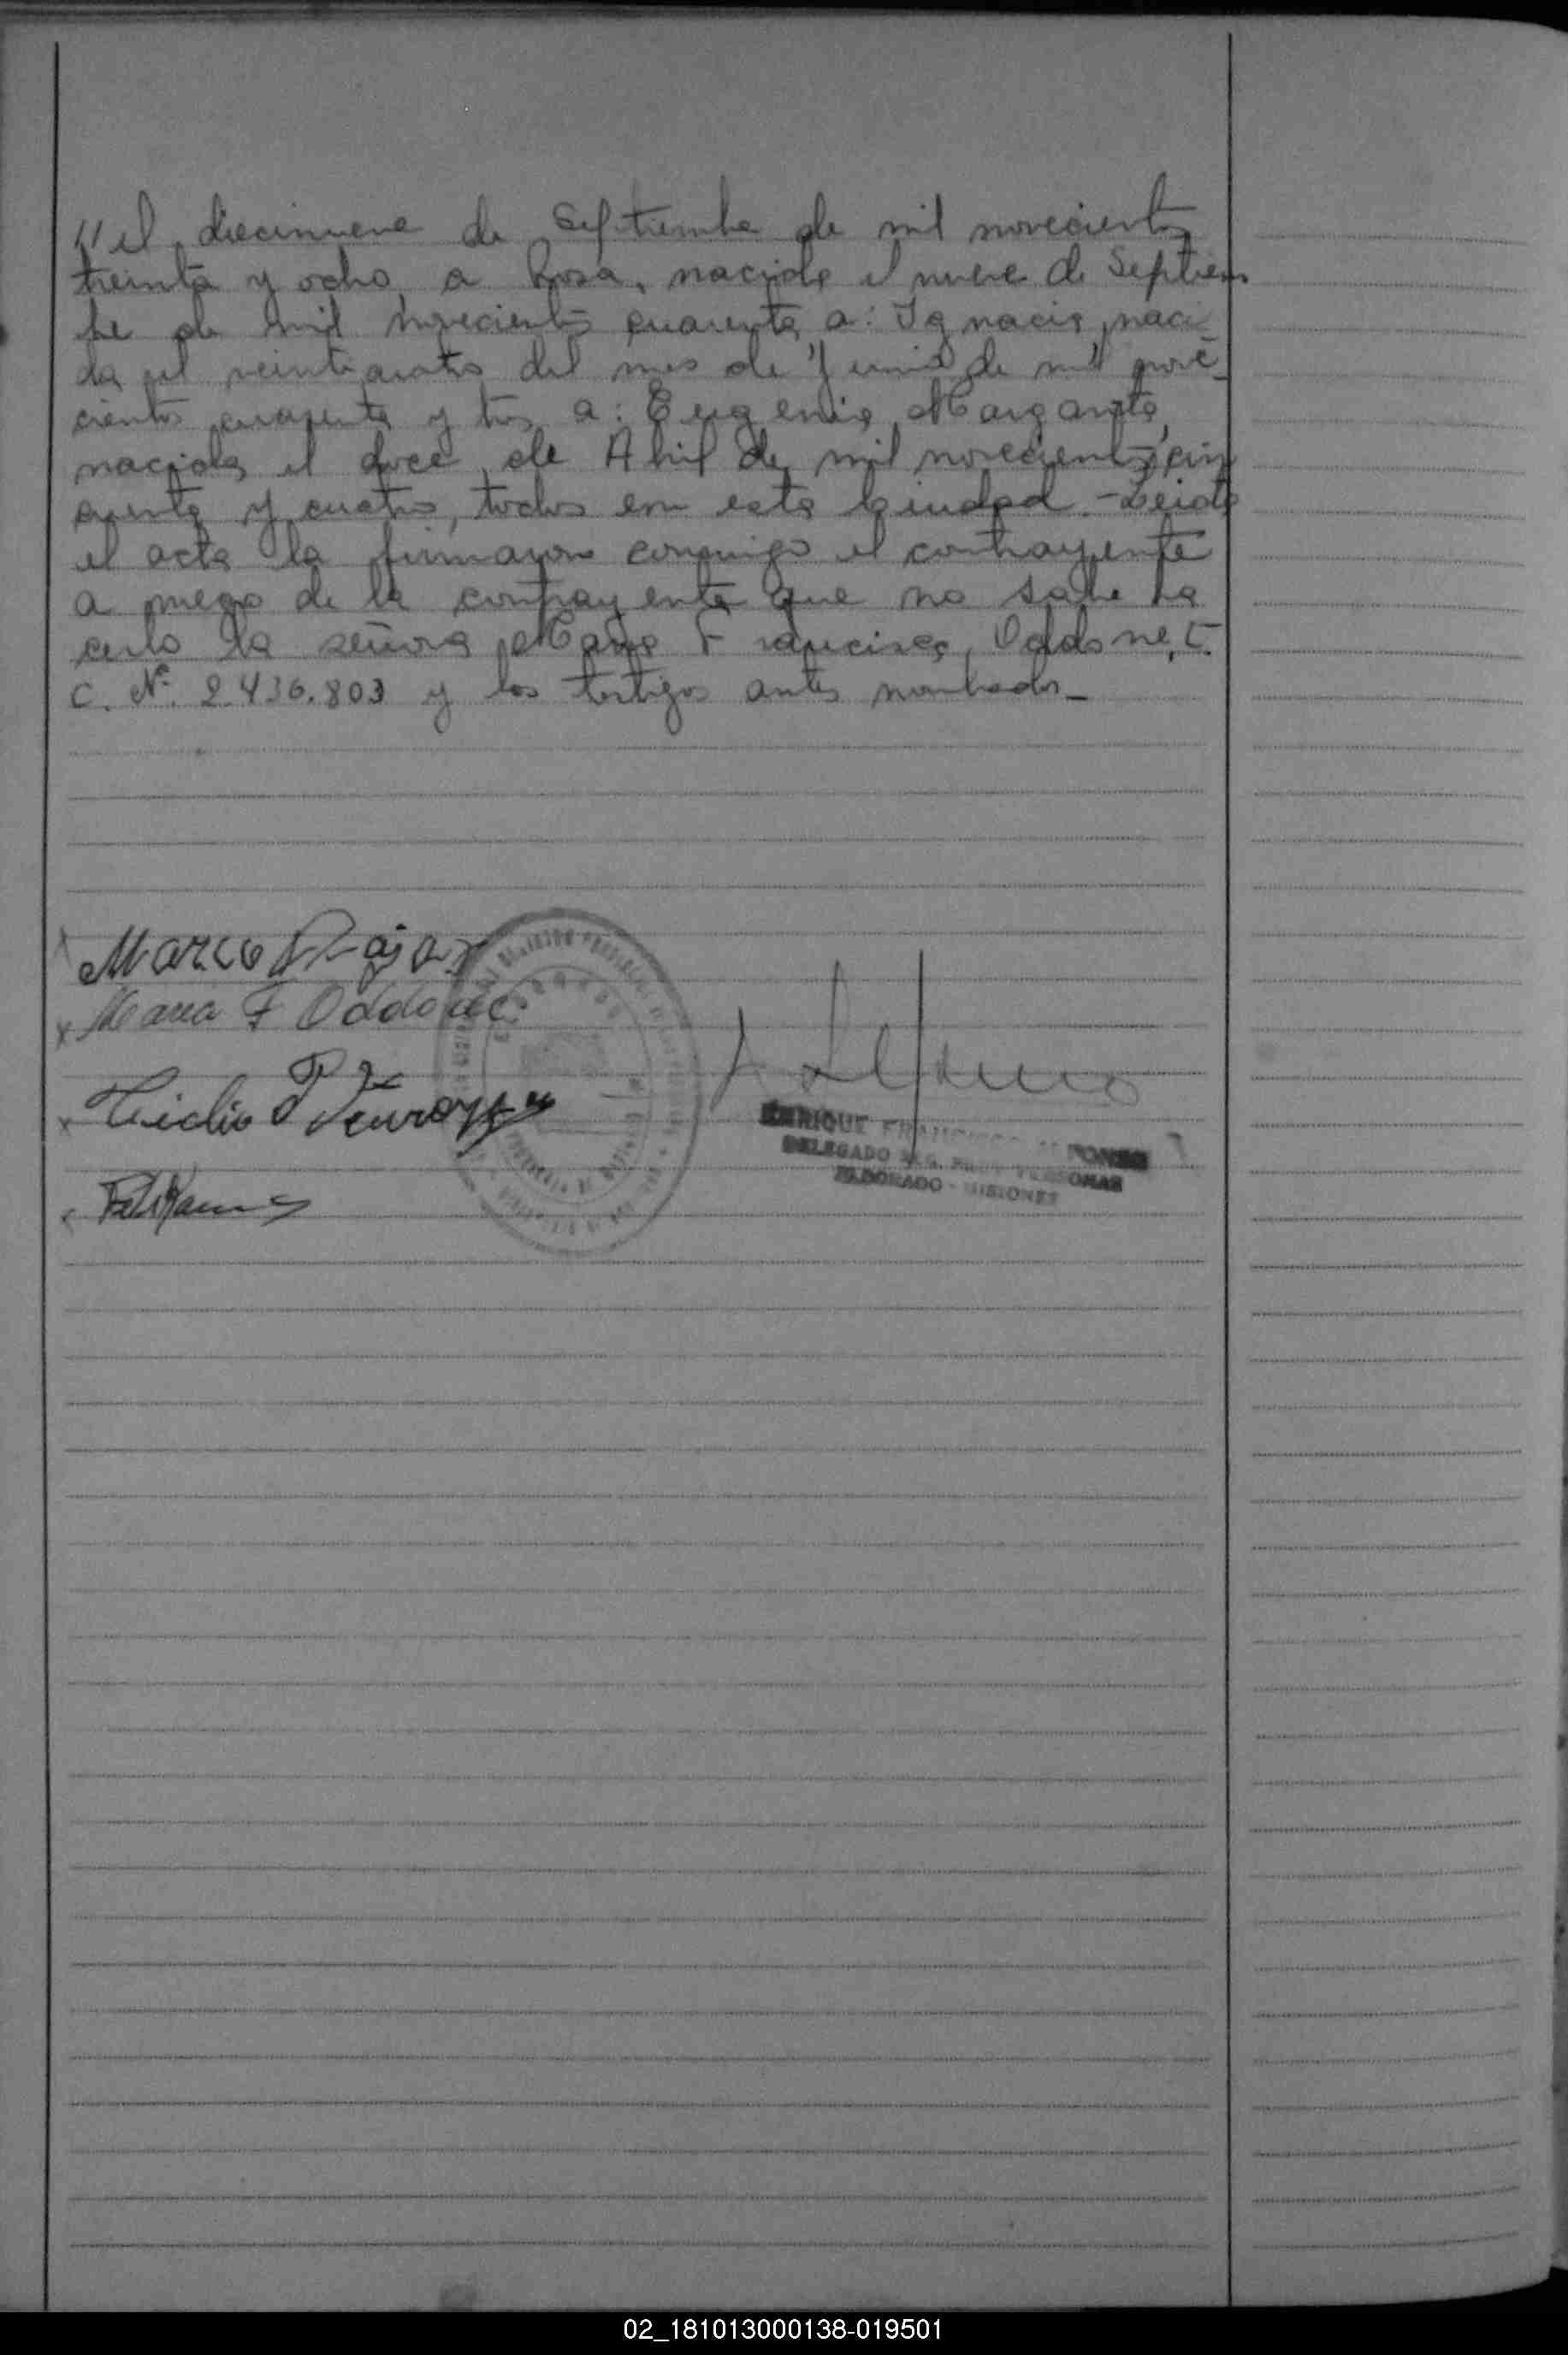 //el diecinueve de Septiembre de mil novecientos
treinta y ocho, a Rosa, nacida el nueve de Septiem
bre de mil novecientos cuarenta, a: Ignacia, naci
da el veinticuatro del mes de Junio de mil nove-
cientos cuarenta y tres, a: Eugenia Margarita,
nacida el doce de Abril de mil novecientos cin
cuenta y cuatro, todos en esta Ciudad.- Leida
el acta la firmaron conmigo el contrayente
a ruego de la contrayente que no sabe ha
cerlo la señora Maria Francisca Oddone, L.
C. Nº. 2.436.803 y los testigos antes nombrados-
Marco Rojas
Maria F Oddone
ENRIQUE FRANCISCO
DELEGADO REG. PROV. PERSONAS
ELDORADO - MISIONES
02_181013000138-019501